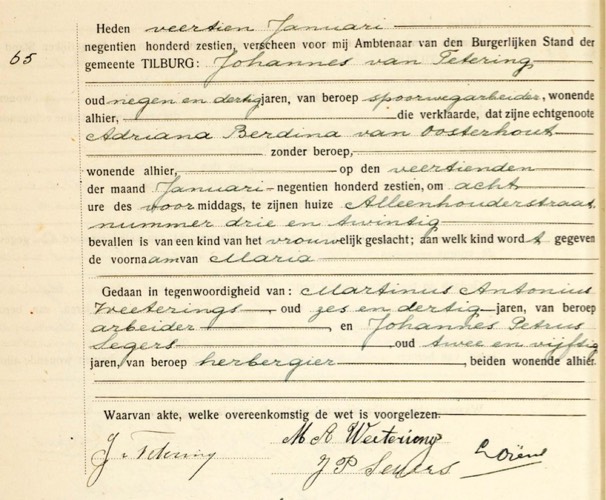 Heden veertien Januari
65
negentien honderd zestien, verscheen voor mij Ambtenaar van den Burgerlijken Stand der
gemeente TILBURG: Johannes van Tetering
oud negen en dertig jaren, van beroep spoorwegarbeider, wonende
alhier, die verklaarde, dat zijne echtgenoote
Adriana Berdina van Oosterhout
zonder beroep,
wonende alhier, op den veertienden
der maand Januari negentien honderd zestien, om acht
ure des voormiddags, te zijnen huize Alleenhouderstraat
nummer drie en twintig
bevallen is van een kind van het vrouwelijk geslacht; aan welk kind wordt gegeven
de voornaam van Maria
Gedaan in tegenwoordigheid van: Martinus Antonius
Weeterings, oud zes en dertig jaren, van beroep
arbeider, en Johannes Petrus
Segers oud twee en vijftig
jaren, van beroep herbergier, beiden wonende alhier.
Waarvan akte, welke overeenkomstig de wet is voorgelezen.
J v Tetering
M A Weeterings
J P Segers